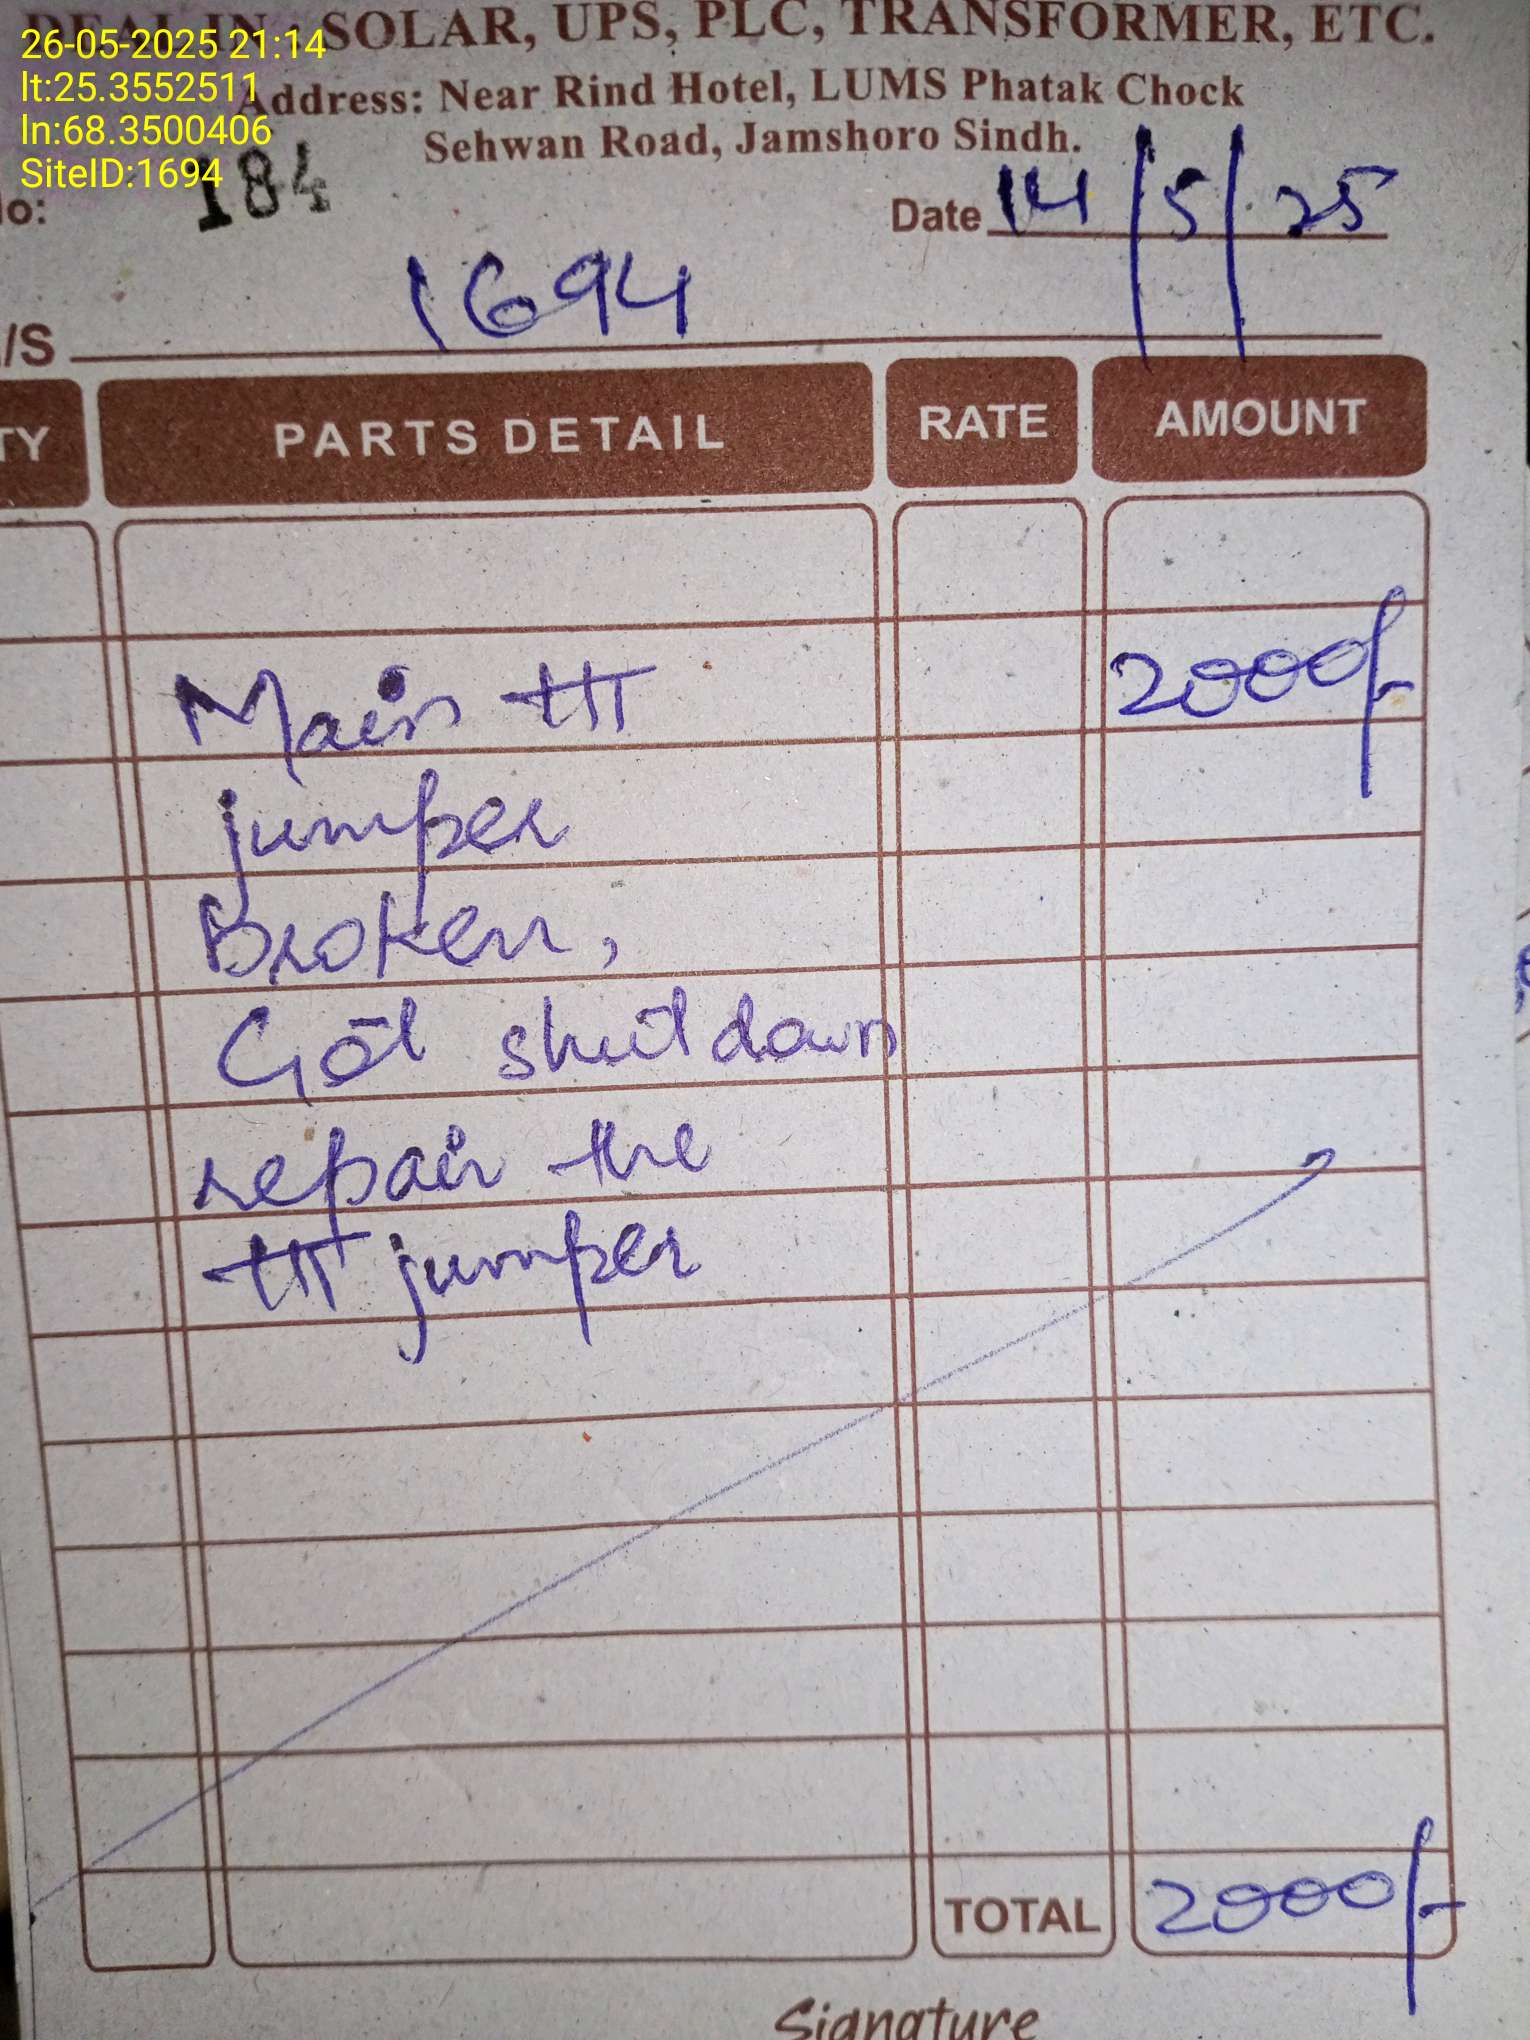 DEAL IN : SOLAR, UPS, PLC, TRANSFORMER, ETC.
26-05-2025 21:14
lt:25.3552511
ln:68.3500406
SiteID:1694
Address: Near Rind Hotel, LUMS Phatak Chock
Sehwan Road, Jamshoro Sindh.
184
Date 14/5/25
/S 1694
TY PARTS DETAIL RATE AMOUNT
Main HT 2000/-
jumper
Broken,
Got shutdown
repair the
HT jumper
TOTAL 2000/-
Signature